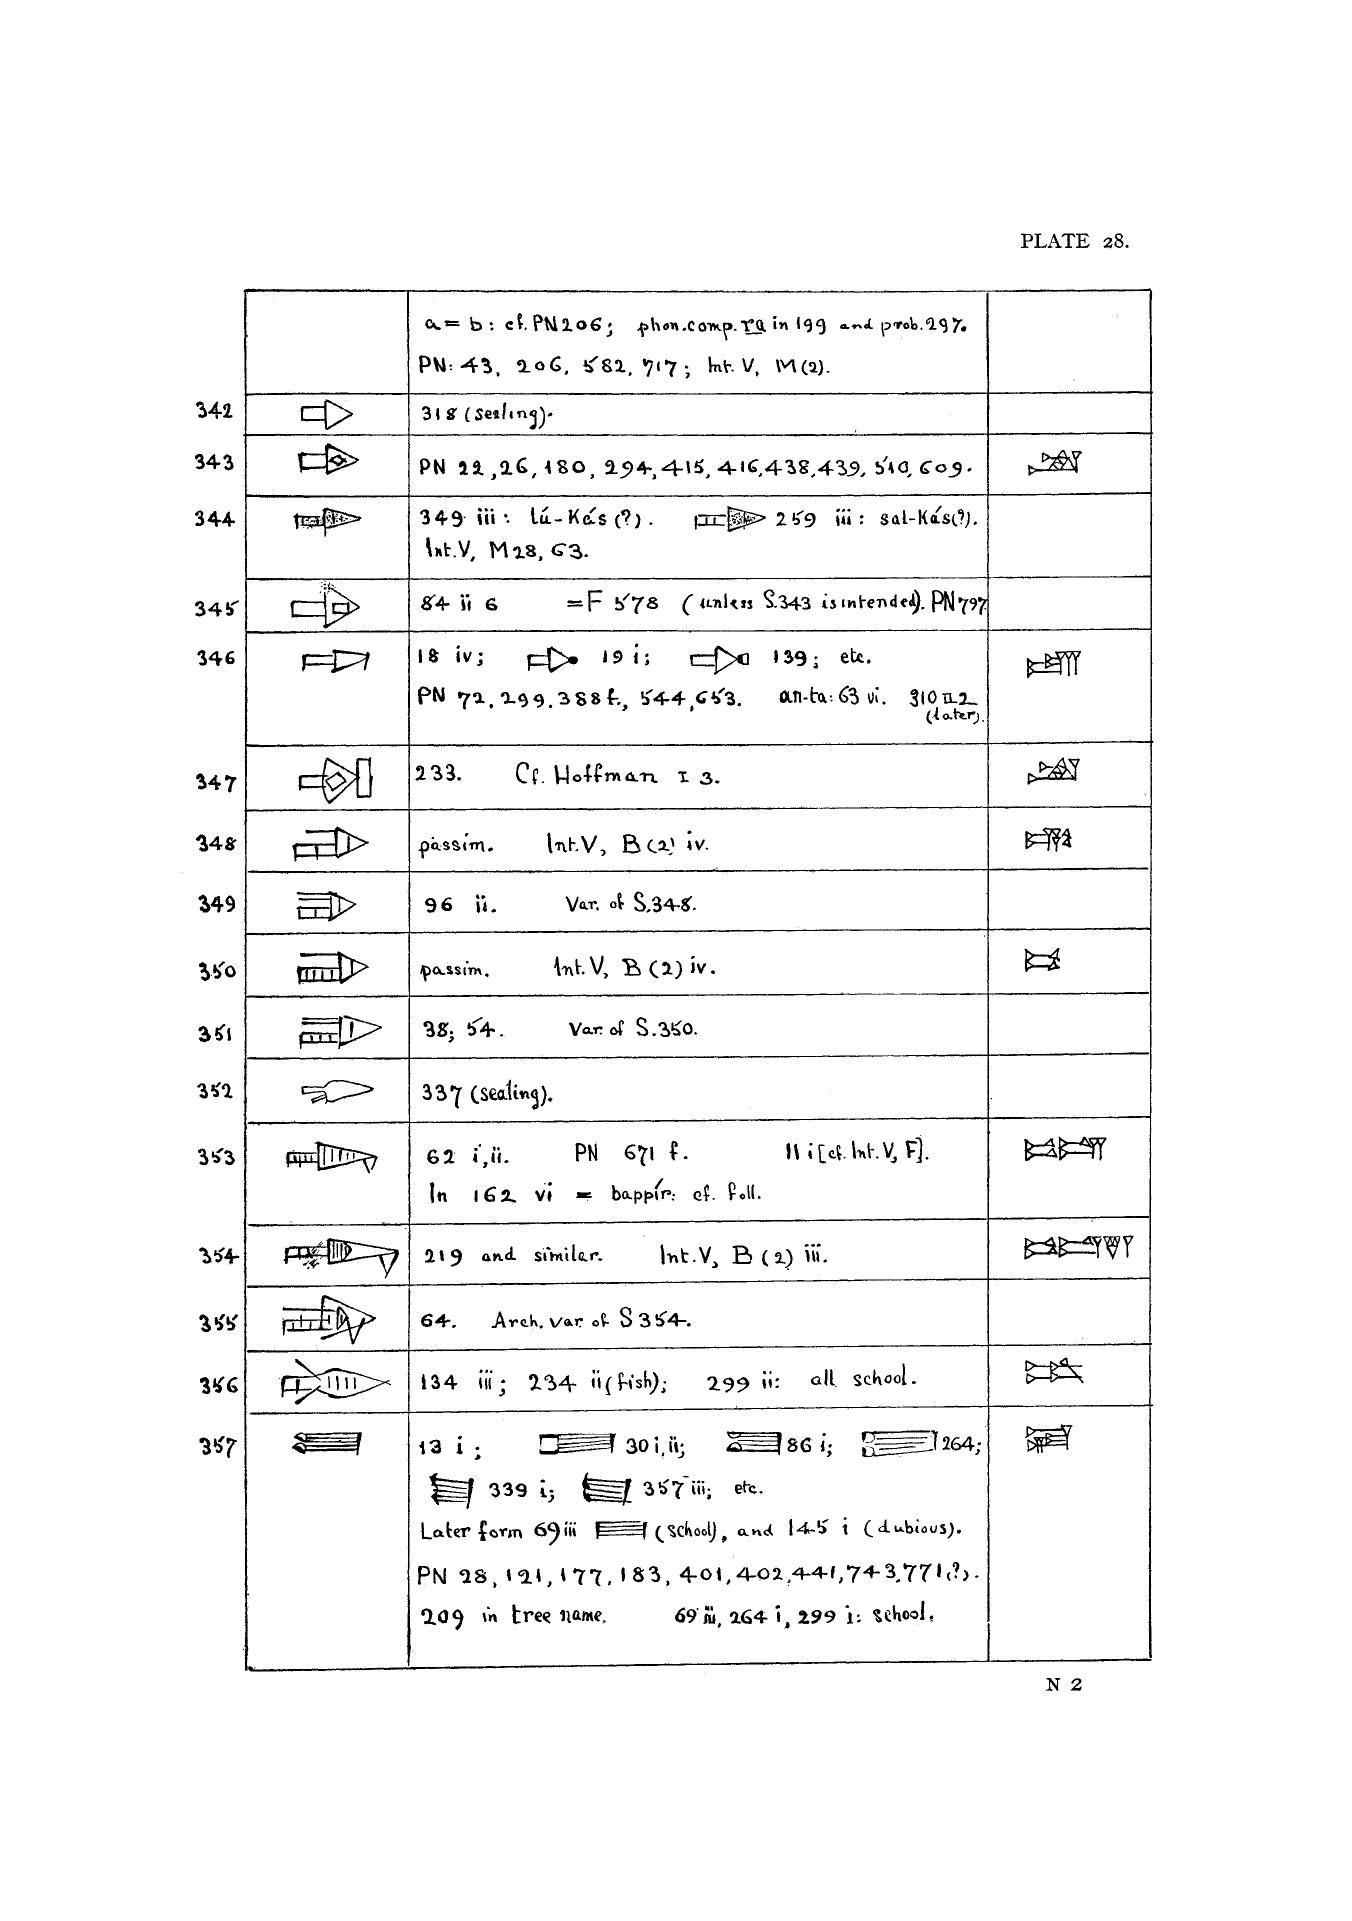 PLATE 28.
a = b : cf. PN 206 ; phon. comp. ra in 199 and prob. 297.
PN : 43, 206, 582, 717 ; Int. V, M (2).
342 318 (sealing).
343 PN 22, 26, 180, 294, 415, 416, 438, 439, 510, 609.
344 349 iii : lú-Kás (?). 259 iii : sal-Kás (?).
Int. V, M 28, 63.
345 84 ii 6 = F 578 (unless S.343 is intended). PN 797
346 18 iv ; 19 i ; 139 ; etc.
PN 72, 299, 388 f., 544, 653. an-ta : 63 vi. 310 II 2
(later).
347 233. Cf. Hoffman I 3.
348 passim. Int. V, B (2) iv.
349 96 ii. Var. of S.348.
350 passim. Int. V, B (2) iv.
351 38 ; 54. Var. of S.350.
352 337 (sealing).
353 62 i, ii. PN 671 f. 11 i [cf. Int. V, F].
In 162 vi = bappír : cf. foll.
354 219 and similar. Int. V, B (2) iii.
355 64. Arch. var. of S 354.
356 134 iii ; 234 ii (fish) ; 299 ii : all school.
357 13 i ; 30 i, ii ; 86 i ; 264 ;
339 i ; 357 iii ; etc.
Later form 69 iii (school), and 145 i (dubious).
PN 28, 121, 177, 183, 401, 402, 441, 743, 771 (?).
209 in tree name. 69 iii, 264 i, 299 i : school.
N 2